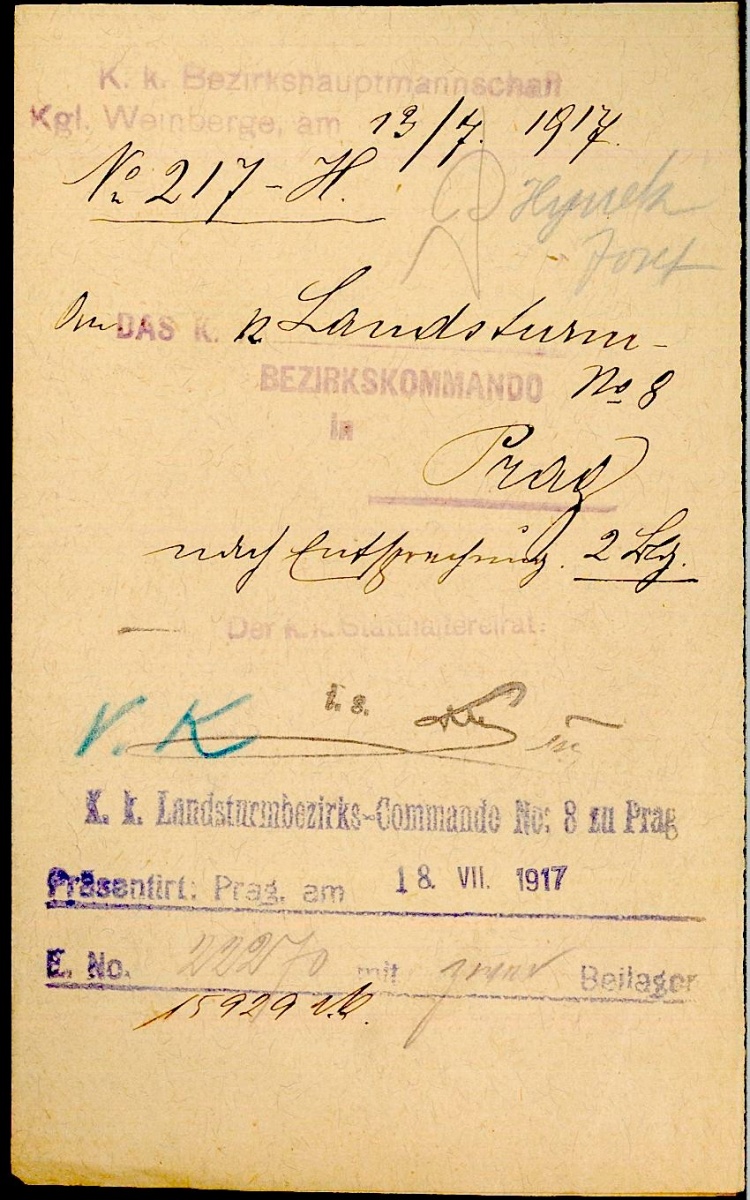 K. k. Bezirkshauptmannschaft
Kgl. Weinberge, am 13/7. 1917.
No 217 - H.
Hynek
Josef
An DAS K. k Landsturm-
BEZIRKSKOMMANDO No 8
in
Prag
nach Entsprechung. 2 Blg.
Der k. k. Statthaltereirat:
V. K
K. k. Landsturmbezirks-Commando No: 8 zu Prag
Präsentirt: Prag, am 18. VII. 1917
E. No. mit zwei Beilagen
15929